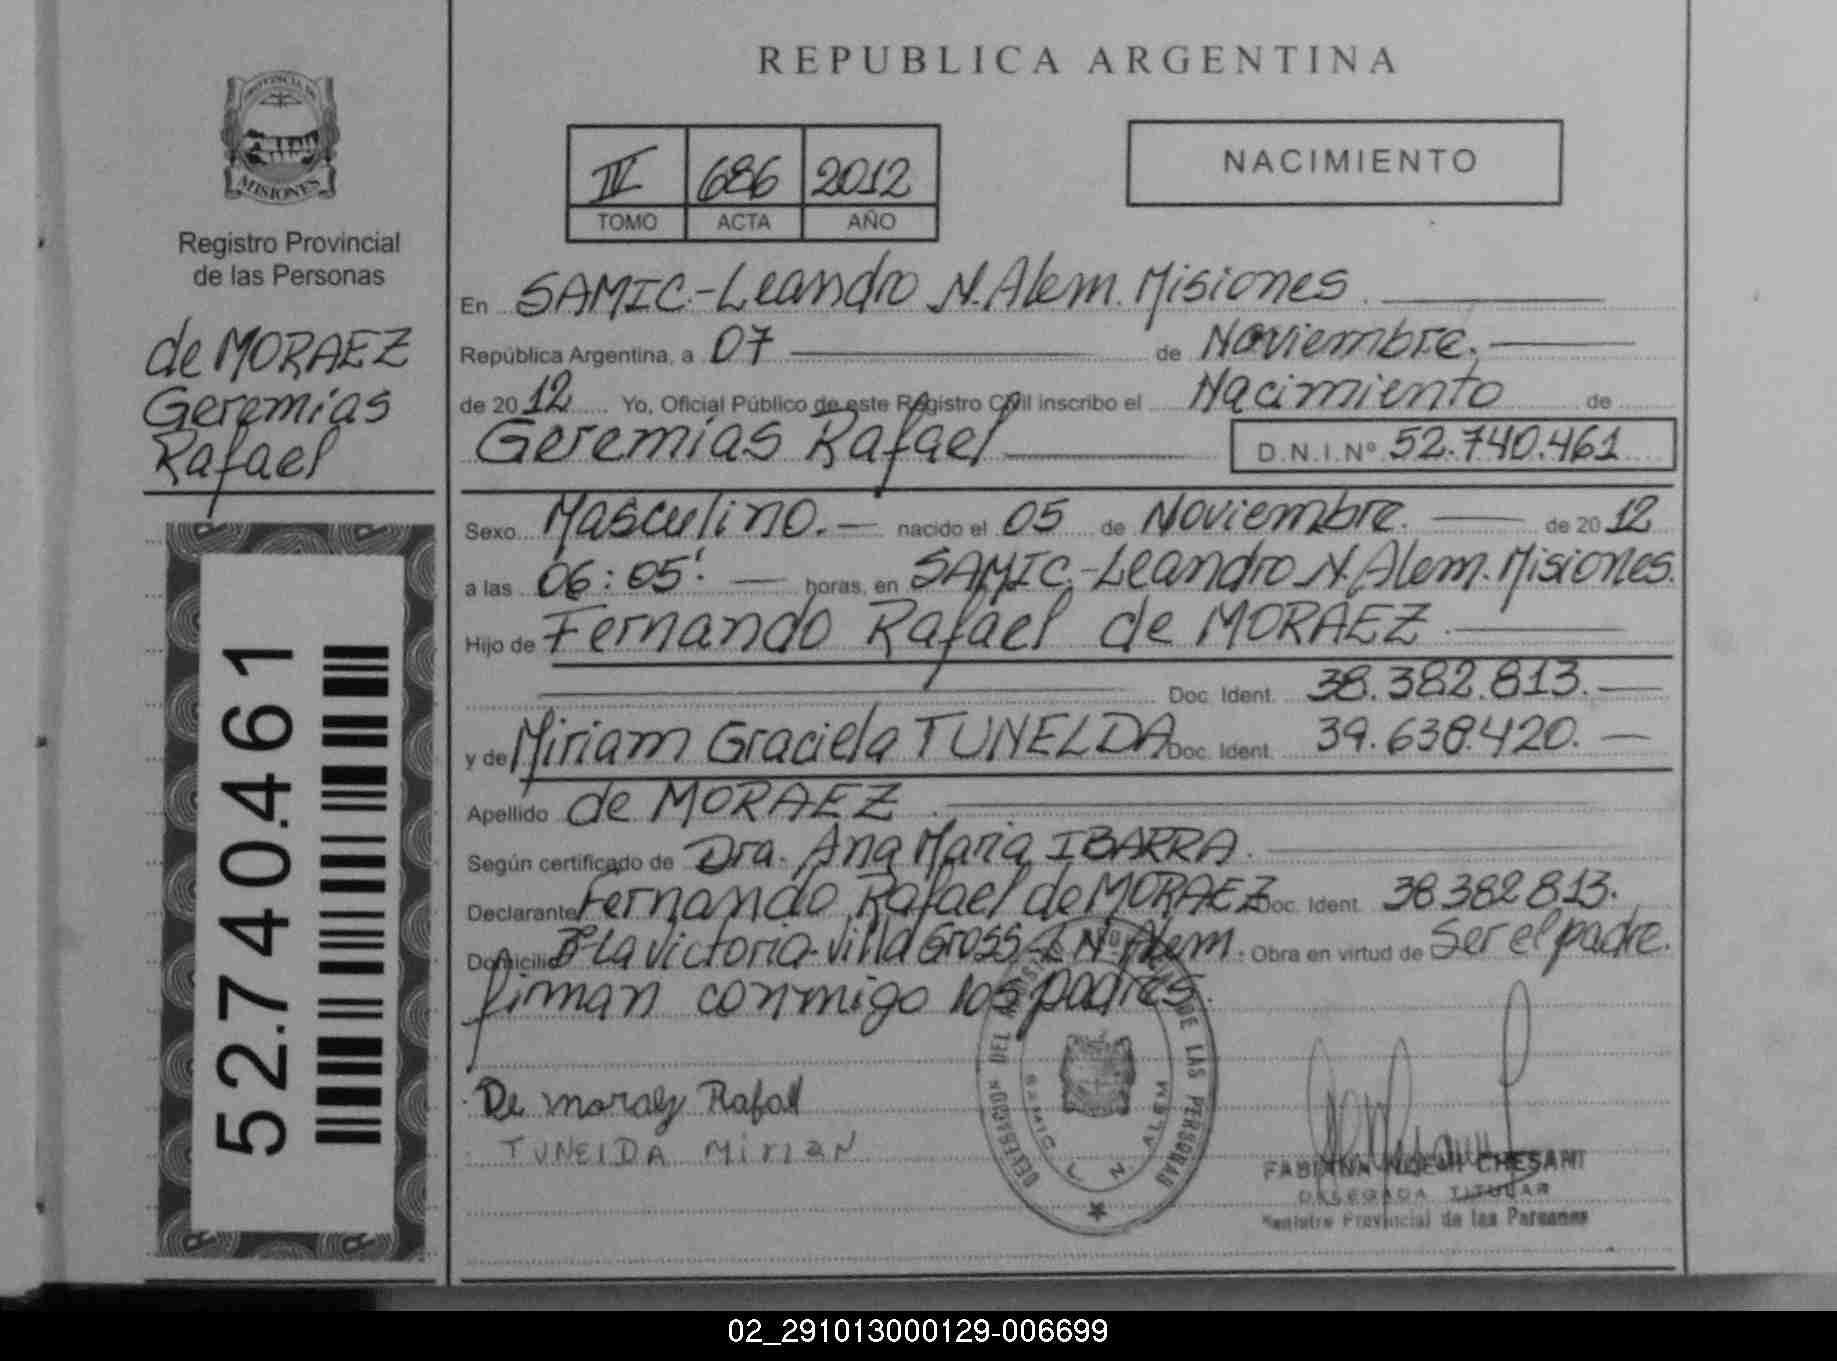 REPUBLICA ARGENTINA
PROVINCIA DE
MISIONES
Registro Provincial
de las Personas
de MORAEZ
Geremías
Rafael
52.740.461
IV 686 2012
TOMO ACTA AÑO
NACIMIENTO
En SAMIC.-Leandro N. Alem. Misiones.
República Argentina, a 07 de Noviembre.
de 2012 Yo, Oficial Público de este Registro Civil inscribo el Nacimiento de
Geremías Rafael D.N.I.Nº 52.740.461
Sexo Masculino.- nacido el 05 de Noviembre. de 2012
a las 06:05'. horas, en SAMIC.-Leandro N. Alem. Misiones.
Hijo de Fernando Rafael de MORAEZ.
Doc. Ident. 38.382.813.
y de Miriam Graciela TUNELDA Doc. Ident. 39.638.420.
Apellido de MORAEZ.
Según certificado de Dra. Ana Maria IBARRA.
Declarante Fernando Rafael de MORAEZ Doc. Ident. 38 382 813.
Domicilio La victoria-Villa Gross-L N. Alem. Obra en virtud de Ser el padre.
firman conmigo los padres.
De moraez Rafael
TUNELDA Mirian
DE LAS PERSONAS
SAMIC L N ALEM
FABIANA NOEMI CHESANI
DELEGADA TITULAR
Registro Provincial de las Personas
02_291013000129-006699